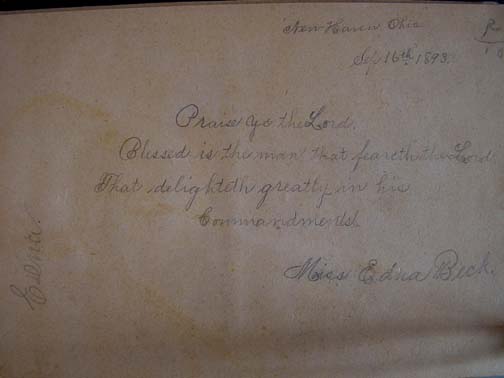 New Haven, Ohio
Sep 16th 1893.
Praise ye the Lord.
Blessed is the man that feareth the Lord
That delighteth greatly in his
Commandments.
Miss Edna Beck.
Edna.